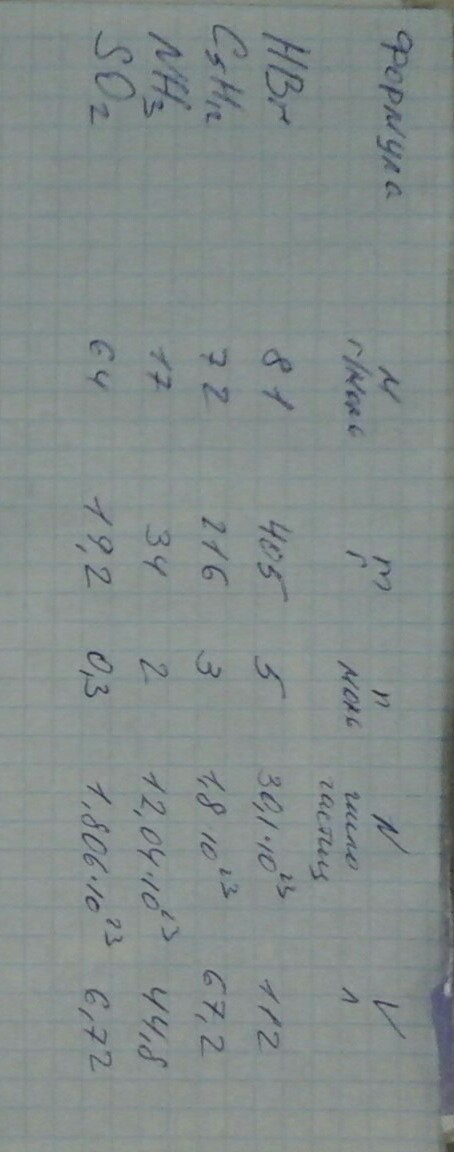 Формула M г/моль m г n моль N число частиц V л
HBr 81 405 5 30,1·10²³ 112
C₅H₁₂ 72 216 3 1,8·10²³ 67,2
NH₃ 17 34 2 12,04·10²³ 44,8
SO₂ 64 19,2 0,3 1,806·10²³ 6,72